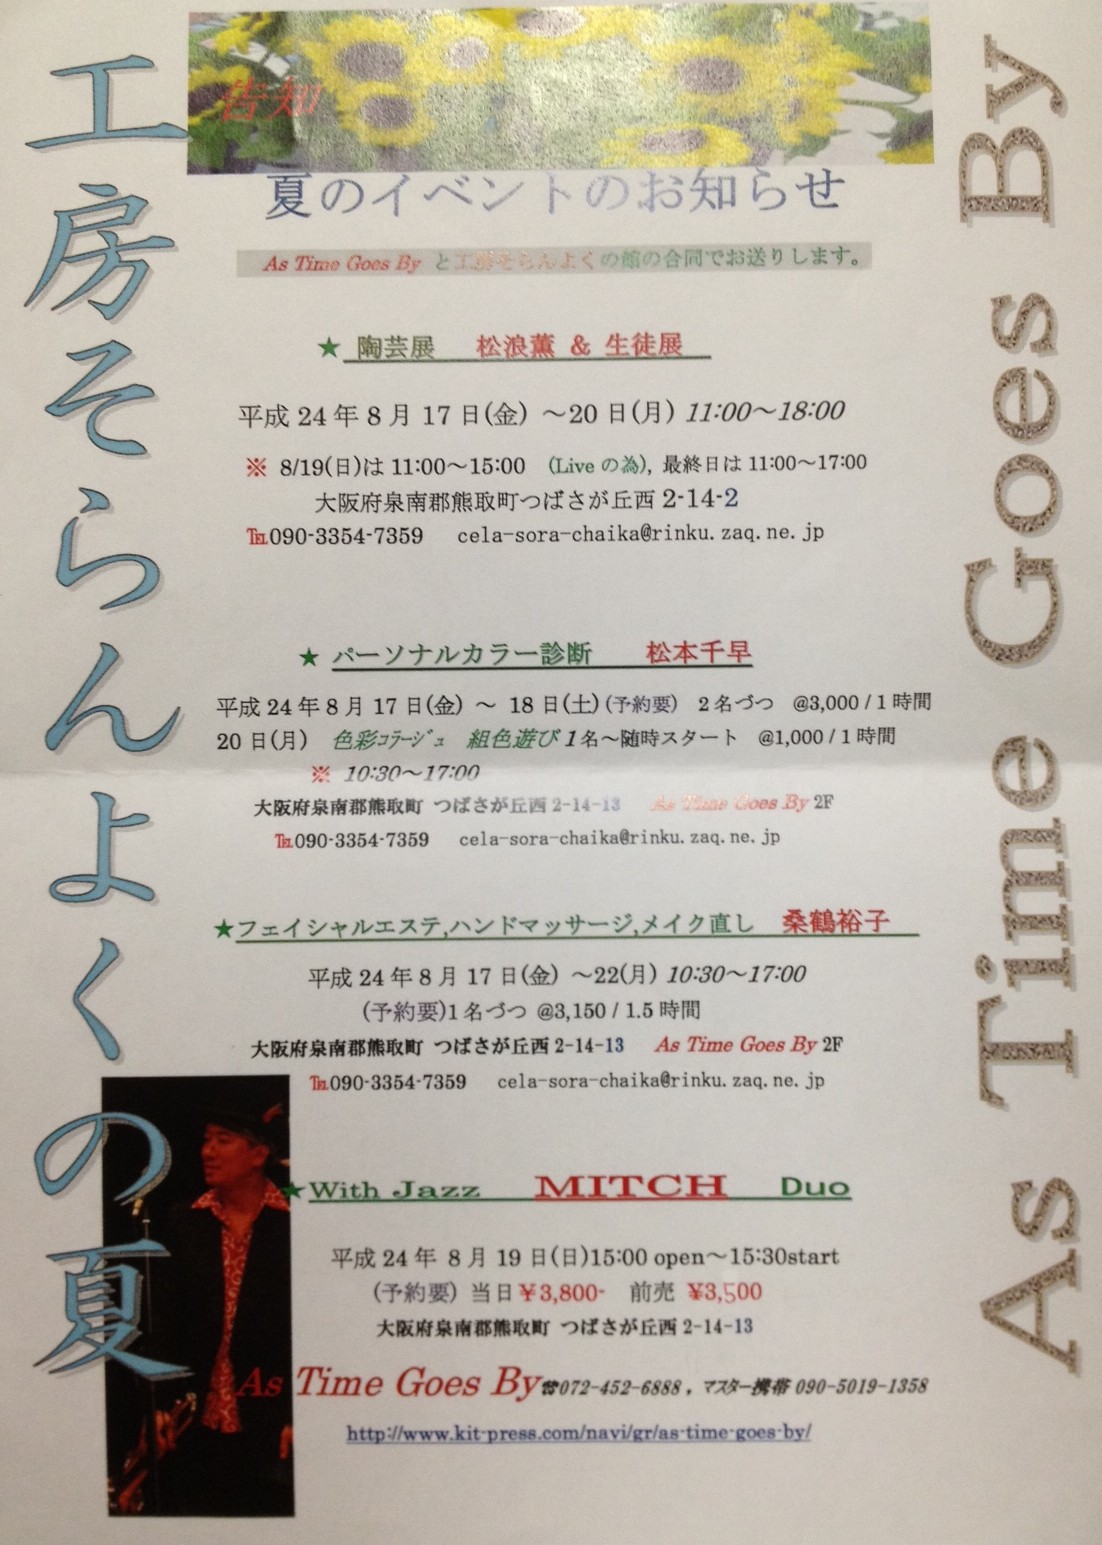 告知
夏のイベントのお知らせ
As Time Goes By と工房そらんよくの館の合同でお送りします。
★ 陶芸展 松浪薫 & 生徒展
平成 24 年 8 月 17 日(金) ～20 日(月) 11:00～18:00
※ 8/19(日)は 11:00～15:00 (Live の為), 最終日は 11:00～17:00
大阪府泉南郡熊取町つばさが丘西 2-14-2
℡090-3354-7359 cela-sora-chaika@rinku.zaq.ne.jp
★ パーソナルカラー診断 松本千早
平成 24 年 8 月 17 日(金) ～ 18 日(土)(予約要) 2 名づつ @3,000 / 1 時間
20 日(月) 色彩ｺﾗｰｼﾞｭ 組色遊び 1 名～随時スタート @1,000 / 1 時間
※ 10:30～17:00
大阪府泉南郡熊取町 つばさが丘西 2-14-13 As Time Goes By 2F
℡090-3354-7359 cela-sora-chaika@rinku.zaq.ne.jp
★フェイシャルエステ,ハンドマッサージ,メイク直し 桑鶴裕子
平成 24 年 8 月 17 日(金) ～22(月) 10:30～17:00
(予約要)1 名づつ @3,150 / 1.5 時間
大阪府泉南郡熊取町 つばさが丘西 2-14-13 As Time Goes By 2F
℡090-3354-7359 cela-sora-chaika@rinku.zaq.ne.jp
★With Jazz MITCH Duo
平成 24 年 8 月 19 日(日)15:00 open～15:30start
(予約要) 当日￥3,800- 前売 ￥3,500
大阪府泉南郡熊取町 つばさが丘西 2-14-13
As Time Goes By☎072-452-6888 , マスター携帯 090-5019-1358
http://www.kit-press.com/navi/gr/as-time-goes-by/
工房そらんよくの夏
As Time Goes By